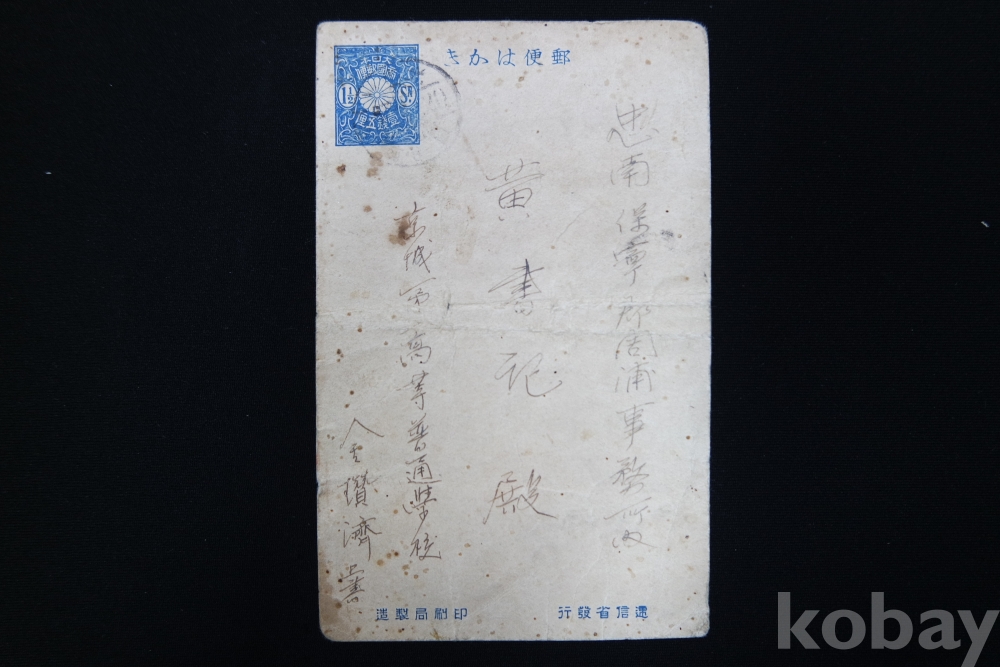 郵便はかき
大日本
帝國郵便
1½ Sn
壹錢五厘
忠南保寧郡周浦事務所内
黃書記殿
京城第一高等普通學校
金瓚濟
遞信省發行
印刷局製造
kobay